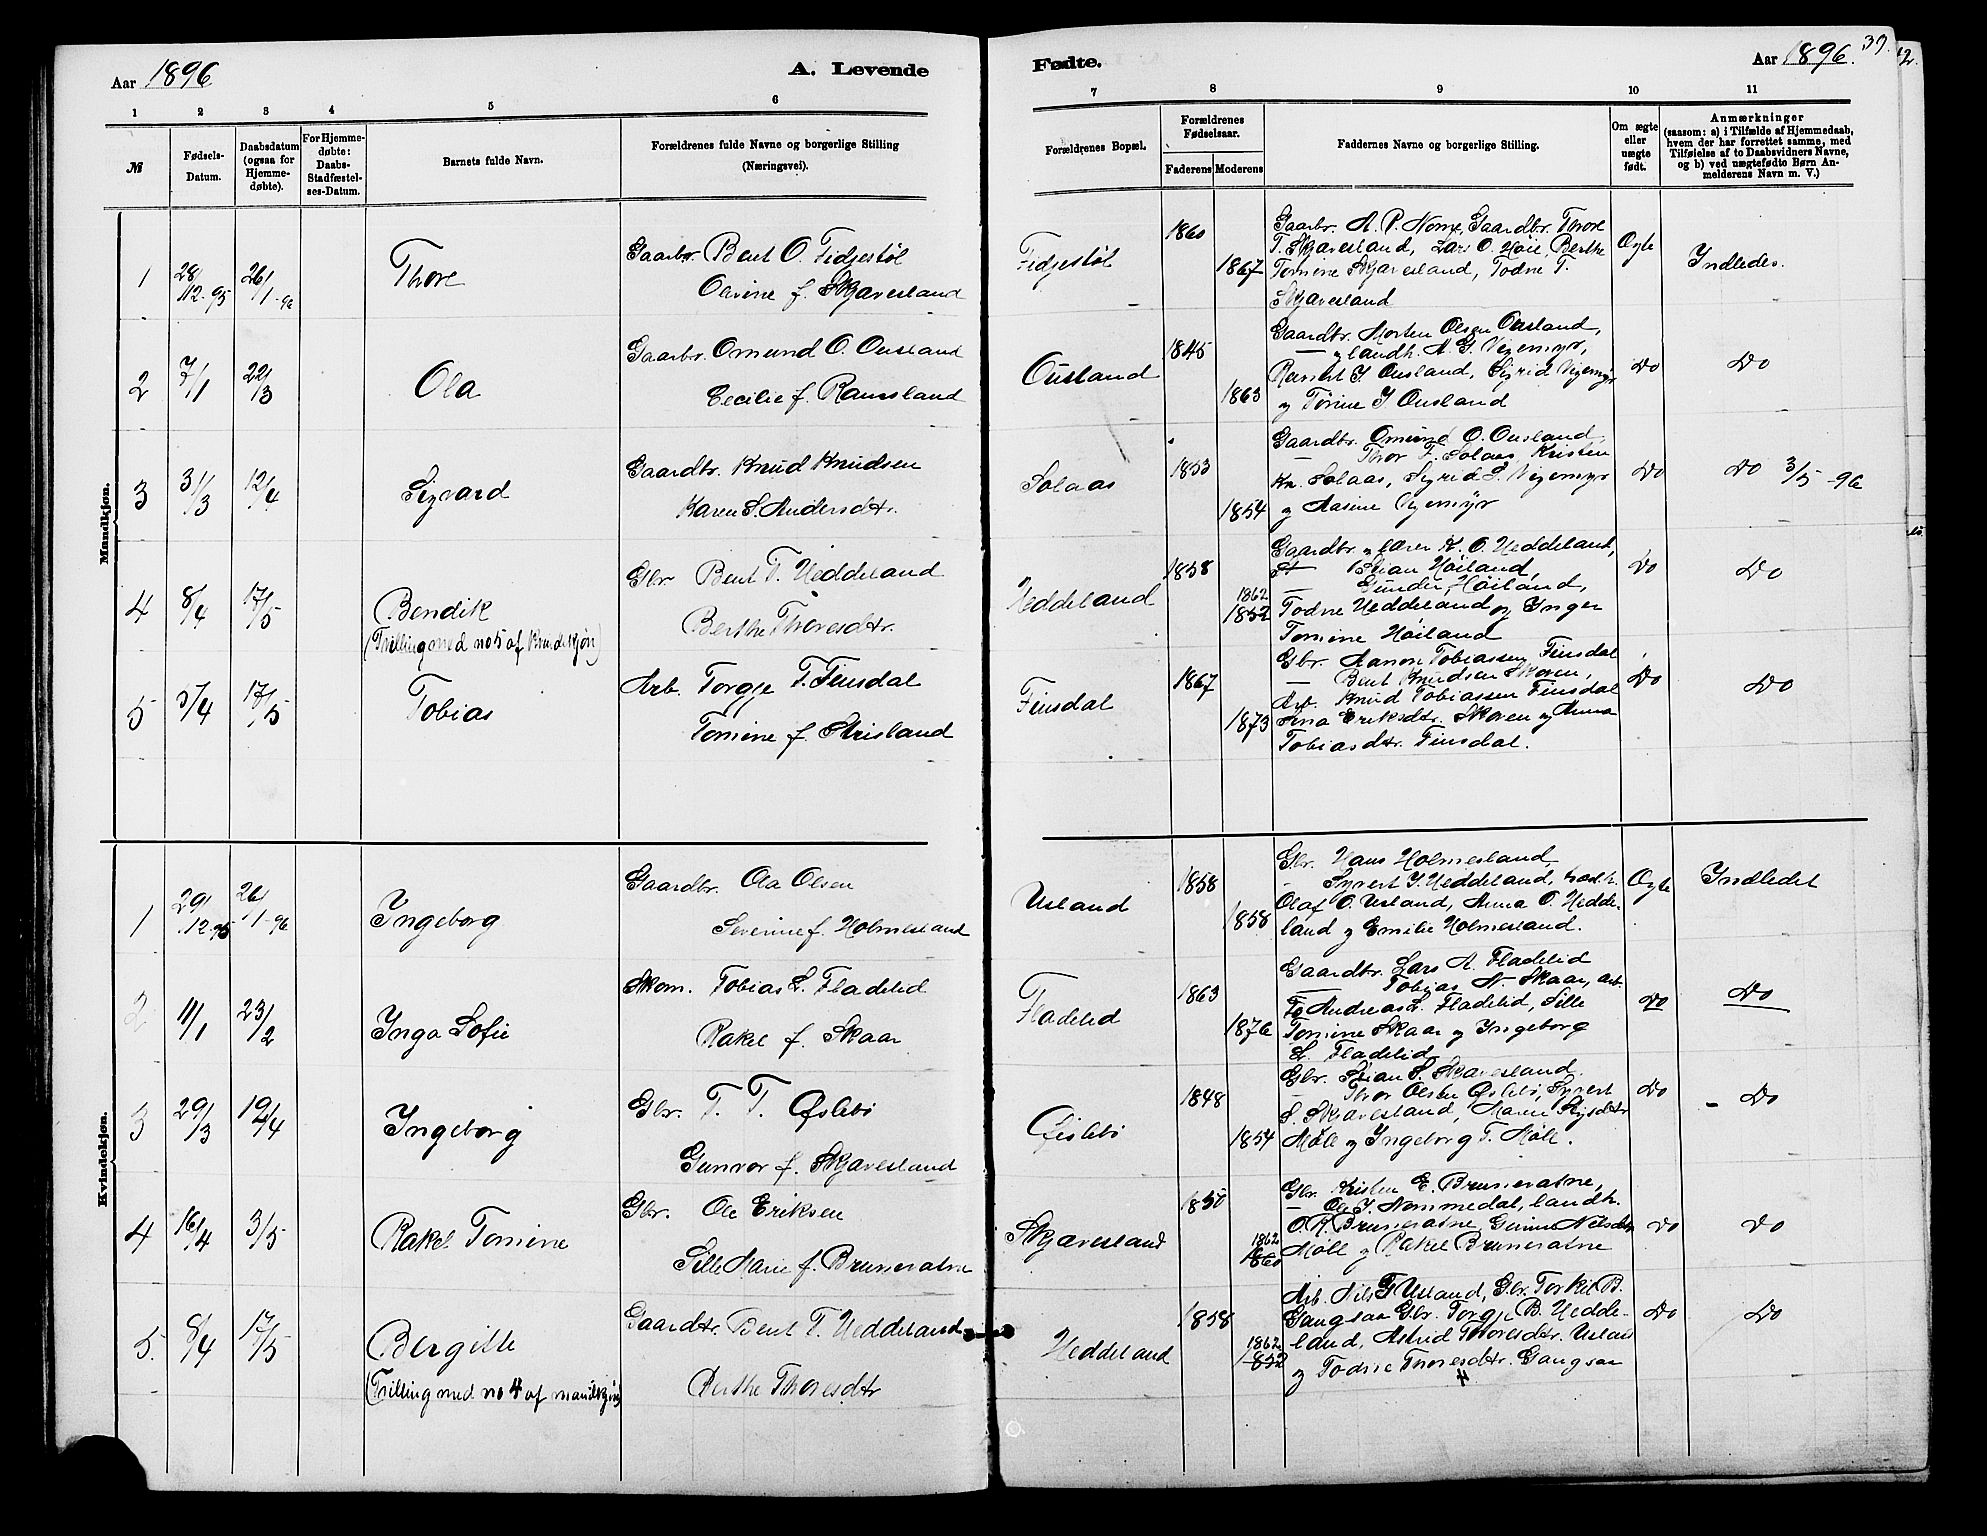 Aar 1896
A. Levende
Fødte.
Aar 1896.
39.
1 2 3 4 5 6 7 8 9 10 11
№
Fødsels-
Datum.
Daabsdatum
(ogsaa for
Hjemme-
døbte).
For Hjemme-
døbte:
Daabs-
Stadfæstel-
ses-Datum.
Barnets fulde Navn.
Forældrenes fulde Navne og borgerlige Stilling
(Næringsvei).
Forældrenes Bopæl.
Forældrenes
Fødselsaar.
Faderens Moderens
Faddernes Navne og borgerlige Stilling.
Om ægte
eller
uægte
født.
Anmærkninger
(saasom: a) i Tilfælde af Hjemmedaab,
hvem der har forrettet samme, med
Tilføielse af to Daabsvidners Navne,
og b) ved uægtefødte Børn An-
melderens Navn m. V.)
Mandkjøn.
1 28/12-95 26/1-96 Thore
Gaarbr. Bent O. Fidjestøl
Olivine f. Skjævesland
Fidjestøl 1860 1867
Gaarbr. A. P. Nome, Gaardbr. Thore
T. Skjævesland, Lars O. Høie, Berthe
Tomine Skjævesland, Todne T.
Skjævesland
Ægte Indledes.
2 7/1 22/3 Ola
Gaarbr. Omund O. Ousland
Cecilie f. Ramsland
Ousland 1845 1863
Gaardbr. Morten Olsen Ousland,
— y landh. A. G. Vigemyr,
J. Ousland, Sigrid Vigemyr
og Torine J. Ousland
Do Do
3 31/3 12/4 Sigvard
Gaardbr. Knud Knudsen
Karen S. Andersdtr.
Solaas 1853 1854
Gaardbr. Omund O. Ousland,
— Thor F. Solaas, Kristen
Kn. Solaas, Sigrid S. Vigemyr
og Aasine Vigemyr
Do Do 3/5-96
4 8/4 17/5 Bendik
(Trilling med no 5 af kvindekjøn)
Gbr Bent T. Heddeland
Berthe Thoresdtr.
Heddeland 1858 1862 1852
Gaardbr. y lærer K. O. Heddeland,
— Stian Høiland,
— Gunder Høiland,
Todne Heddeland og Inger
Tomine Høiland
Do Do
5 5/4 17/5 Tobias
Arb. Torgje T. Finsdal
Tomine f. Strisland
Finsdal 1867 1873
Gbr. Aanon Tobiassen Finsdal
— Bent Knudsen Skoven,
Arb. Knud Tobiassen Finsdal
Sina Eriksdtr. Skoven og Anna
Tobiasdtr. Finsdal.
Do Do
Kvindekjøn.
1 29/12-95 26/1-96 Ingeborg
Gaardbr. Ola Olsen
Severine f. Holmesland
Usland 1858 1858
Gbr. Hans Holmesland,
— Syvert J. Heddeland, landh.
Olaf O. Usland, Anna O. Hedde-
land og Emilie Holmesland.
Ægte Indledet
2 11/1 23/2 Inga Sofie
Skom. Tobias L. Fladelid
Rakel f. Skaar
Fladelid 1863 1876
Gaardbr. Lars A. Fladelid
— Tobias N. Skaar, arb.
Andreas L. Fladelid, Sille
Tomine Skaar og Ingeborg
L. Fladelid
Do Do
3 29/3 19/4 Ingeborg
Gbr. T. T. Øslebø
Gunvor f. Skjævesland
Øislebø 1848 1854
Gbr. Stian S. Skjævesland
— Thor Olsen Øslebø, Syvert
S. Skjævesland, Maren Stigsdtr
Møll og Ingeborg T. Møll.
Do Do
4 16/4 3/5 Rakel Tomine
Gbr. Ole Eriksen
Sille Marie f. Brunevatne
Skjævesland 1850 1862 1860
Gbr. Kristen E. Brunevatne,
— Ole J. Nommedal, landh.
O. K. Brunevatne, Gurine Nilsdtr
Møll og Rakel Brunevatne
Do Do
5. 8/4 17/5 Bergitte
(Trilling med no 4 af mandkjøn)
Gaardbr. Bent T. Heddeland
Berthe Thoresdtr
Heddeland 1858 1862 1852
Arb. Nils G Usland, Gbr. Torkel B.
Gangsaa Gbr. Torgje B. Hedde-
land, Astrid Thoresdtr. Usland
og Todne Thoresdtr. Gangsaa
Do Do